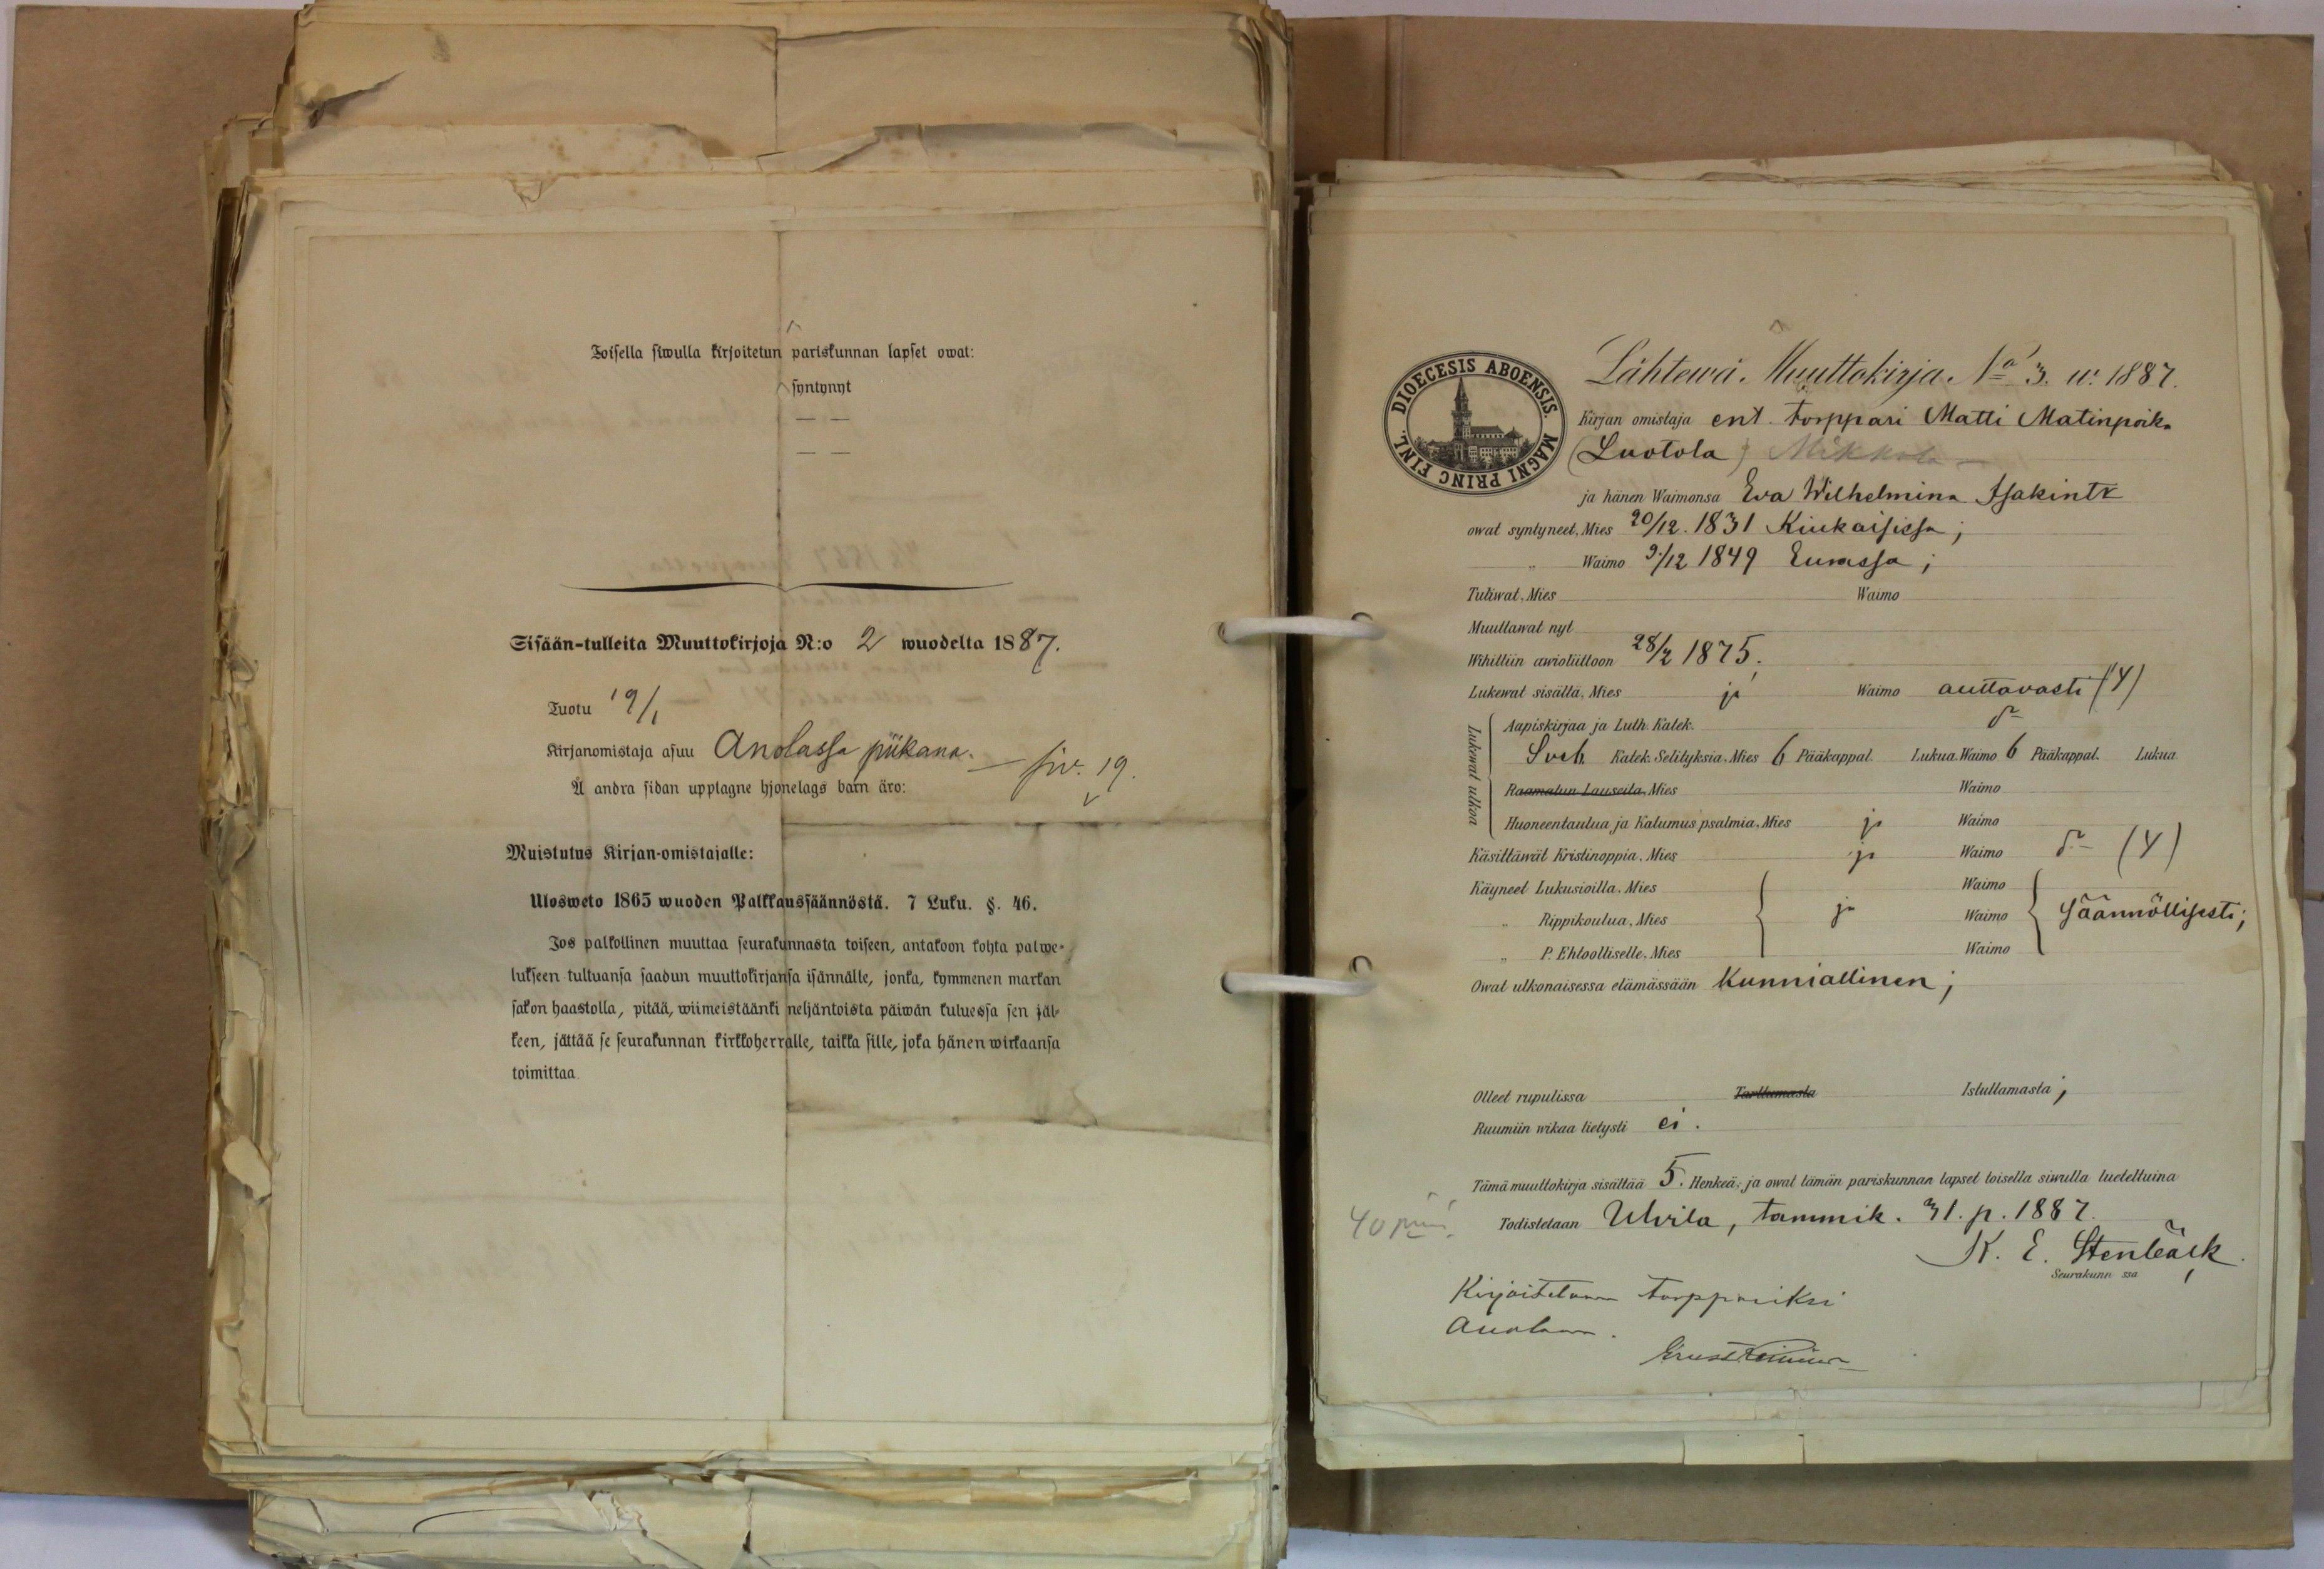 Toisella siwulla kirjoitetun pariskunnan lapset owat:
syntynyt
— —
— —
Sisään-tulleita Muuttokirjoja N:o 2 wuodelta 1887.
Tuotu 19/1
Kirjanomistaja asuu Anolassa piikana. — siv. 19.
Å andra sidan upptagne hjonelags barn äro:
Muistutus Kirjan-omistajalle:
Ulosweto 1865 wuoden Palkkaussäännöstä. 7 Luku. §. 46.
Jos palkollinen muuttaa seurakunnasta toiseen, antakoon kohta palwe-
lukseen tultuansa saadun muuttokirjansa isännälle, jonka, kymmenen markan
sakon haastolla, pitää, wiimeistäänki neljäntoista päiwän kuluessa sen jäl-
keen, jättää se seurakunnan kirkkoherralle, taikka sille, joka hänen wirkaansa
toimittaa
DIOECESIS ABOENSIS. MAGNI PRINC FINL.
Lähtewä Muuttokirja No 3. w. 1887.
Kirjan omistaja ent. torppari Matti Matinpoik.
(Luotola) Mikkola
ja hänen Waimonsa Eva Wilhelmina Isakintr
owat syntyneet, Mies 20/12. 1831 Kiukaisissa;
„ Waimo 9./12 1849 Eurassa;
Tuliwat, Mies Waimo
Muuttawat nyt
Wihittiin awioliittoon 28/2 1875.
Lukewat sisältä, Mies ja Waimo auttavasti (4)
Lukewat ulkoa
Aapiskirjaa ja Luth. Katek.
Sveb. Katek. Selityksia, Mies 6 Pääkappal. Lukua. Waimo 6 Pääkappal. Lukua
Raamatun Lauseita, Mies Waimo
Huoneentaulua ja Katumus psalmia, Mies ja Waimo
Käsittäwät Kristinoppia, Mies ja Waimo (4)
Käyneet Lukusioilla, Mies Waimo
„ Rippikoulua, Mies ja Waimo Säännöllisesti;
„ P. Ehtoolliselle, Mies Waimo
Owat ulkonaisessa elämässään Kunniallinen;
Olleet rupulissa Tarttumasta Istuttamasta;
Ruumiin wikaa tietysti ei.
Tämä muuttokirja sisältää 5. Henkeä; ja owat tämän pariskunnan lapset toisella siwulla lueteltuina
40
Todistetaan Ulvila, tammik. 31. p. 1887.
K. E. Stenbäck.
Seurakunn ssa
Kirjoitetaan torppariksi
Anolaan.